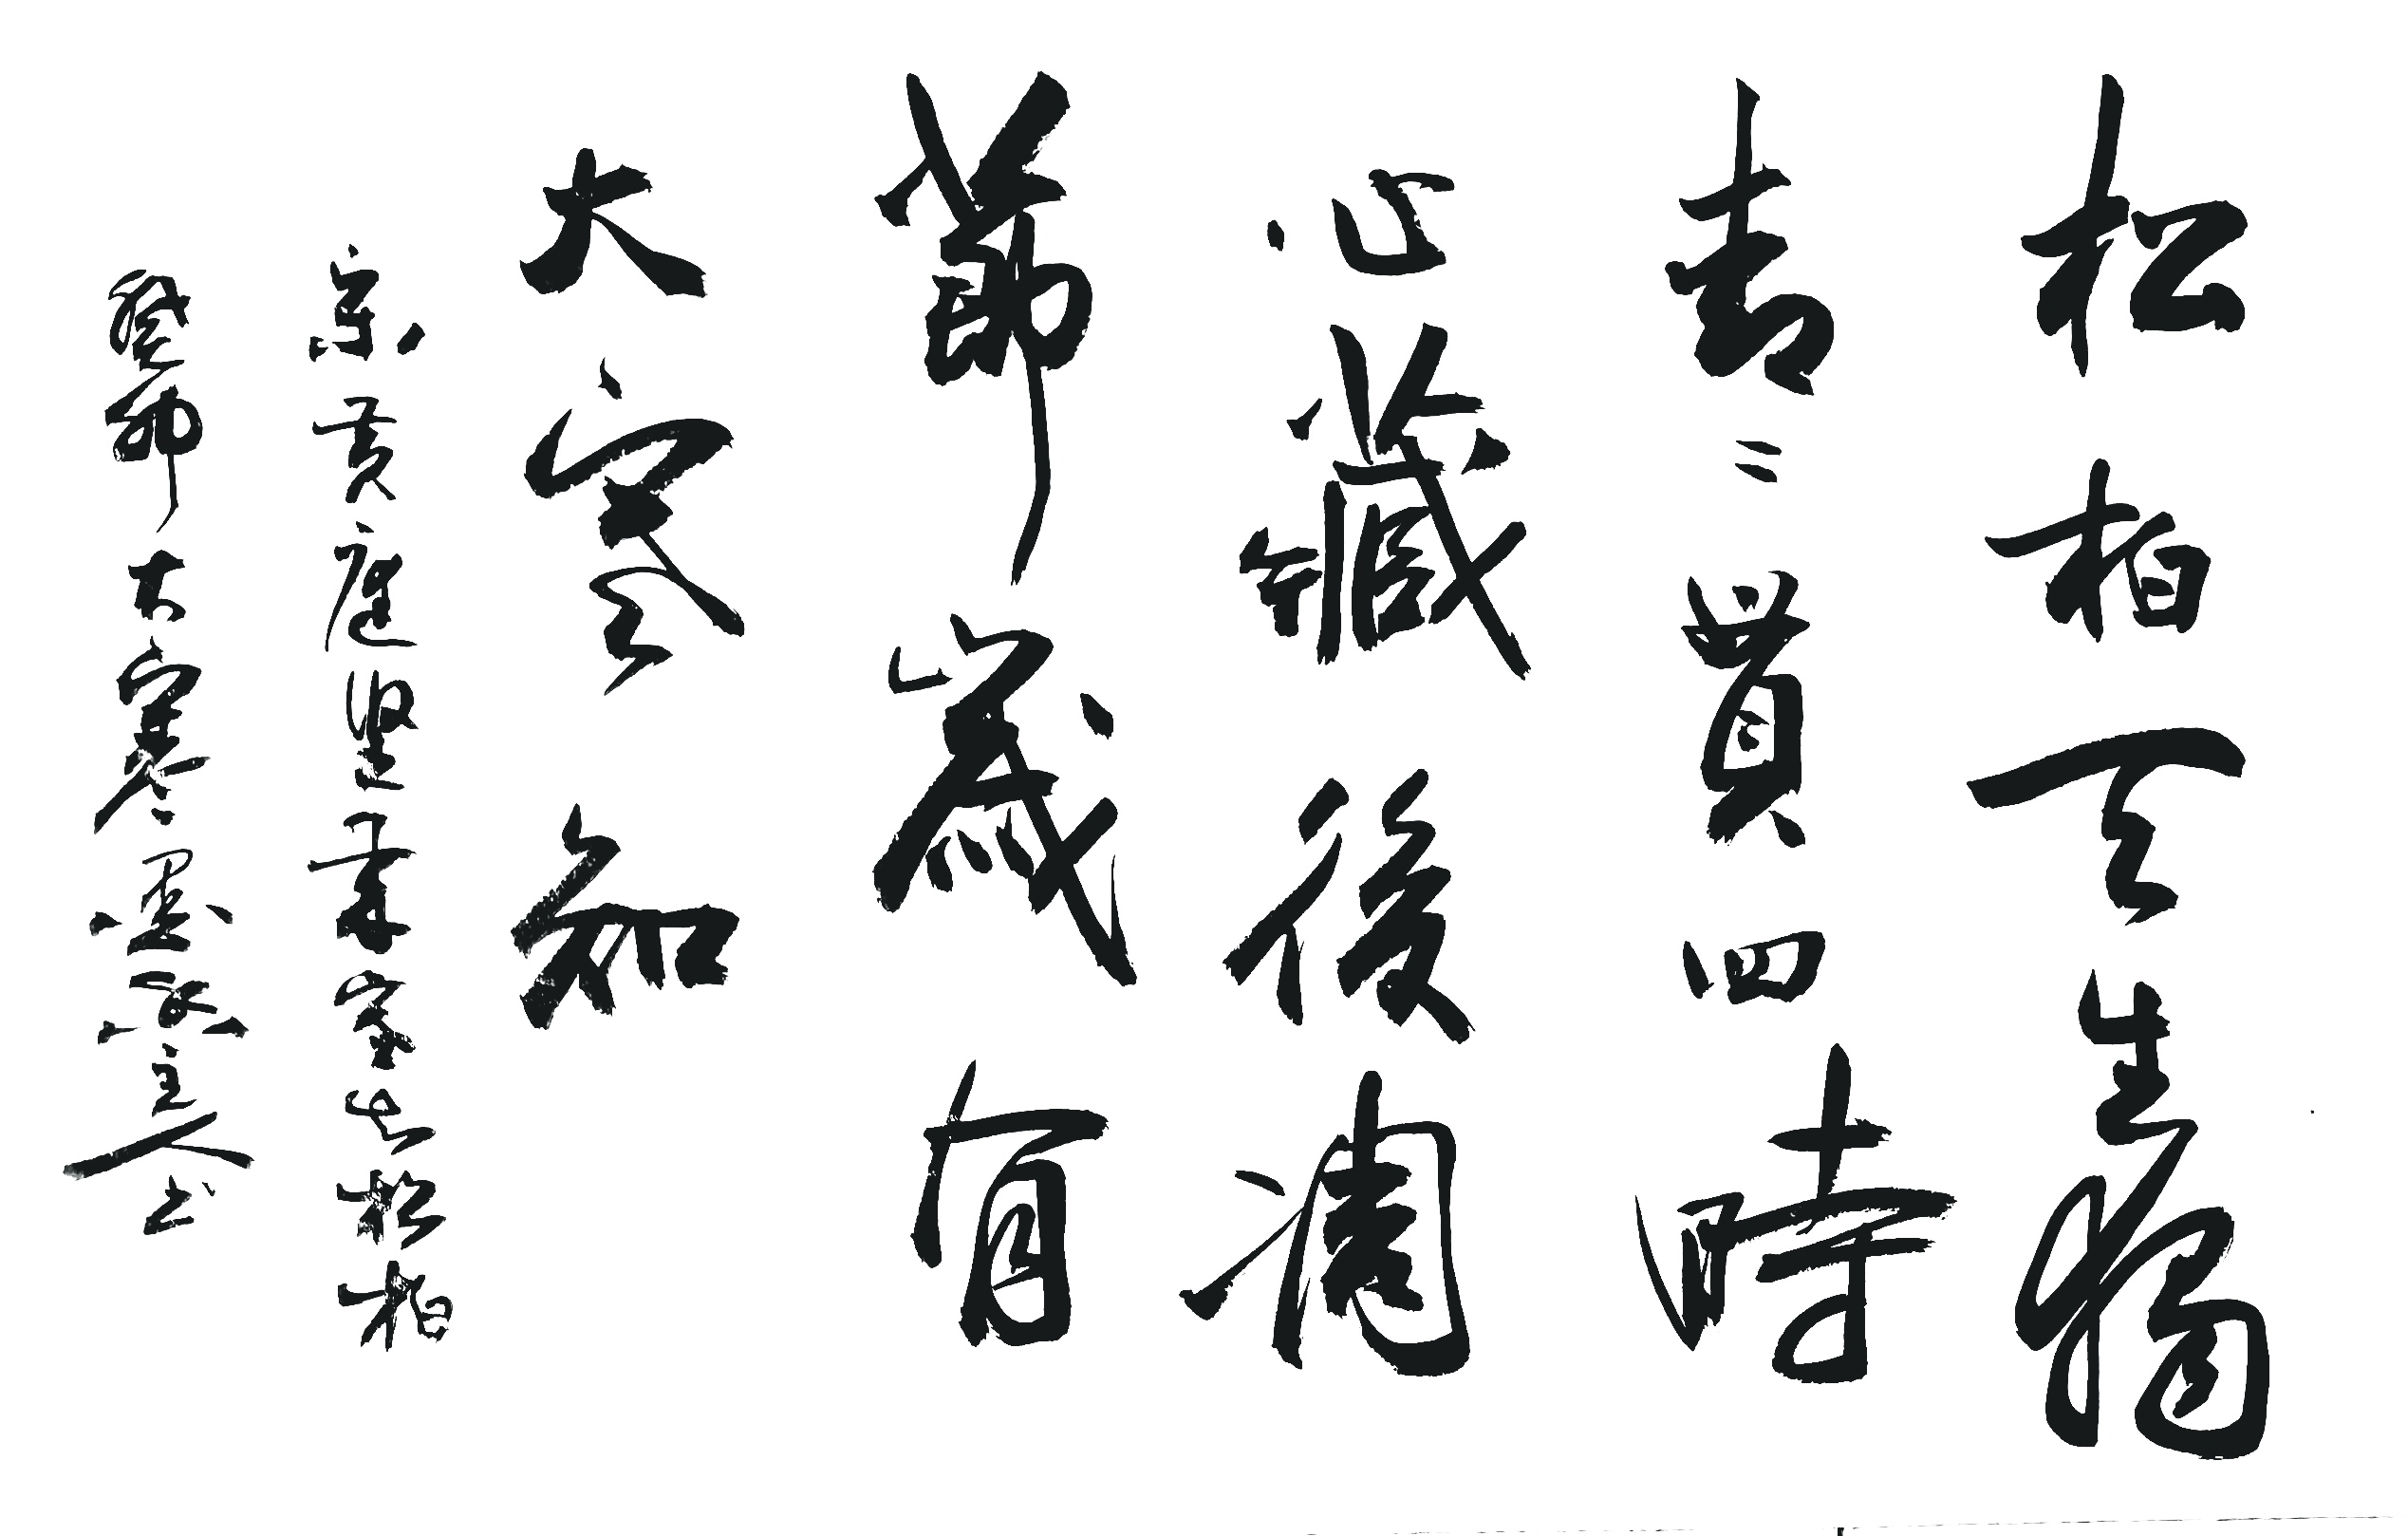 松柏天生獨
青〻貫四時
心藏後凋
節歲有
大寒知
宋黄庭堅歲寒知松柏
癸卯大寒墨主人书